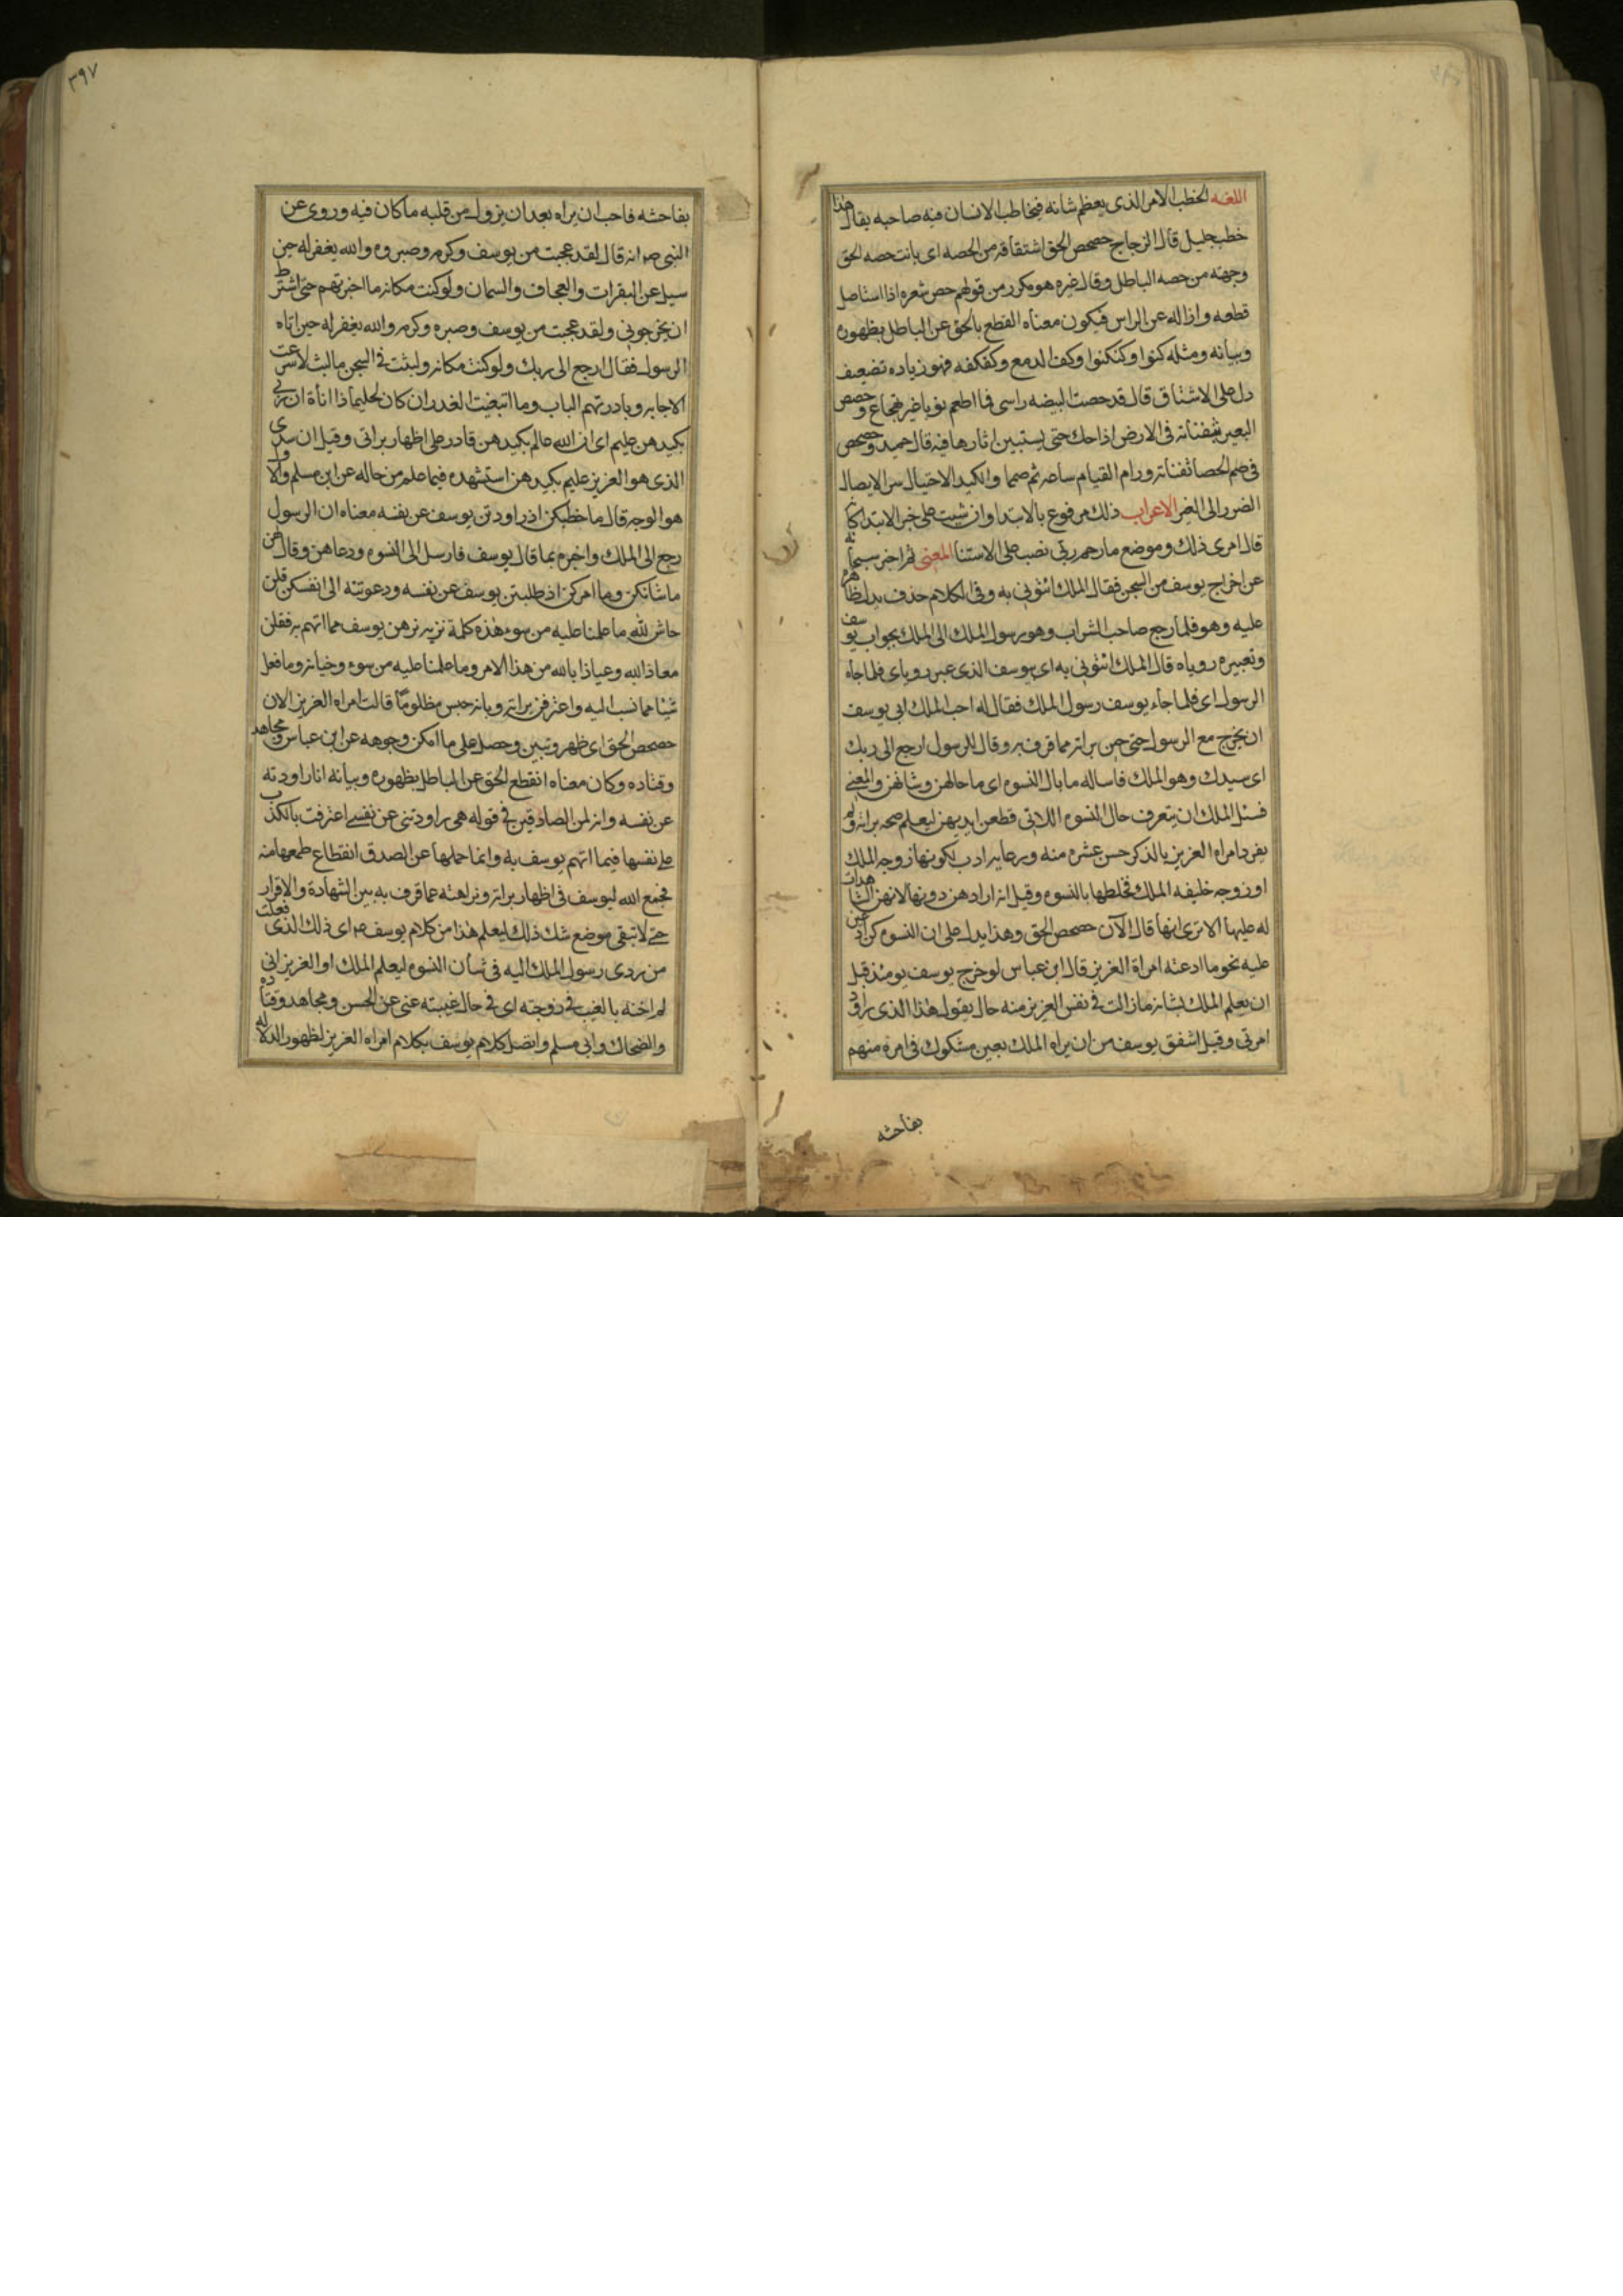 اللغه الخطب الامر الذى يعظم شانه فيخاطب الانسان فيه صاحبه يقال هذا
خطب جليل قال الزجاج حصحص الحق اشتقاقه من الحصه اى بانت حصه الحق
وجهته من حصه الباطل وقال غيره هو مكرر من قولهم حص شعره اذا استاصل
قطعه وازاله عن الراس فيكون معناه القطع بالحق عن الباطل بظهوره
وبيانه ومثله كبوا وكبكبوا وكف الدمع وكفكفه فهو زياده تضعيف
دل على الاشتقاق قال قد حصت البيضه راسى فما اطعم نوما غير تهجاع وحصحص
البعير بثفناته فى الارض اذا حك حتى يستبين اثارها فيه قال حميد وحصحص
فى صم الحصا ثفناته ورام القيام ساعه ثم صمما والكيد الاحتيال س الايصال
الضرر الى الغير الاعراب ذلك مرفوع بالابتدا وان شيت على خبر الابتدا كانه
قال امرى ذلك وموضع ما رحم ربى نصب على الاستثنا المعنى ثم اخبر سبحانه
عن اخراج يوسف من السجن فقال الملك ائتونى به وفى الكلام حذف يدل ظاهره
عليه وهو فلما رجع صاحب الشراب وهو رسول الملك الى الملك بجواب يوسف
وتعبيره روياه قال الملك ائتونى به اى يوسف الذى عبر روياى فلما جاه
الرسول اى فلما جاء يوسف رسول الملك فقال له اجب الملك ابى يوسف
ان يخرج مع الرسول حتى تبين براته مما قرف به وقال للرسول ارجع الى ربك
اى سيدك وهو الملك فاساله ما بال النسوه اى ما حالهن وشانهن والمعنى
فسئل الملك ان يتعرف حال النسوه اللاتى قطعن ايديهن ليعلم صحه براته ولم
يفرد امراه العزيز بالذكر حسن عشره منه ورعايه ادب لكونها زوجه الملك
او زوجه خليفه الملك فخلطها بالنسوه وقيل انه ارادهن دونها لانهن الشاهدات
له عليها الا ترى انها قال الآن حصحص الحق وهذا يدل على ان النسوه كن ادعين
عليه نحو ما ادعته امراة العزيز قال ابن عباس لو خرج يوسف يومئذ قبل
ان يعلم الملك بشانه ما زالت فى نفس العزيز منه حال يقول هذا الذى راود
امرتى وقيل اشفق يوسف من ان يراه الملك بعين مشكوك فى امره متهم
بفاحشه
٣٩٧
بفاحشه فاحب ان يراه بعد ان يزول من قلبه ما كان فيه وروى عن
النبى ص انه قال لقد عجبت من يوسف وكرمه وصبره والله يغفر له حين
سيل عن البقرات والعجاف والسمان ولو كنت مكانه ما اخبرتهم حتى اشترط
ان يخرجونى ولقد عجبت من يوسف وصبره وكرمه والله يغفر له حين اتاه
الرسول فقال ارجع الى ربك ولو كنت مكانه ولبثت فى السجن ما لبث لاسرعت
الاجابه وبادرتهم الباب وما ابتغيت العذر ان كان لحليما ذا اناة ان ربى
بكيدهن عليم اى ان الله عالم بكيدهن قادر على اظهار براتى وقيل ان سيدى
الذى هو العزيز عليم بكيدهن استشهده فيما علم من حاله عن ابن مسلم والاول
هو الوجه قال ما خطبكن اذ راودتن يوسف عن نفسه معناه ان الرسول
رجع الى الملك واخبره بما قال يوسف فارسل الى النسوه ودعاهن وقال لهن
ما شانكن وما امركن اذ طلبتن يوسف عن نفسه ودعوتنه الى انفسكن قلن
حاش لله ما علمنا عليه من سوء هذه كلمة تنزيه نزهن يوسف مما اتهم به فقلن
معاذ الله وعياذا بالله من هذا الامر وما علمنا عليه من سوء وخيانه وما فعل
شيئا مما نسب اليه واعترفن ببراته وبانه حبس مظلوما قالت امراه العزيز الان
حصحص الحق اى ظهر وتبين وحصل على ما امكن وجوهه عن ابن عباس ومجاهد
وقتاده وكان معناه انقطع الحق عن الباطل بظهوره وبيانه انا راودته
عن نفسه وانه لمن الصادقين فى قوله هى راودتنى عن نفسى اعترفت بالكذب
على نفسها فيما اتهم يوسف به وانما حملها عن الصدق انقطاع طمعها منه
فجمع الله ليوسف فى اظهار براته ونزاهته عما قرف به بين الشهادة والاقرار
حتى لا تبقى موضع شك ذلك ليعلم هذا من كلام يوسف ع اى ذلك الذى فعلت
من ردى رسول الملك اليه فى شأن النسوه ليعلم الملك او العزيز انى
لم اخنه بالغيب فى زوجته اى فى حال غيبته عنى عن الحسن ومجاهد وقتاده
والضحاك وابى مسلم واتصل كلام يوسف بكلام امراه العزيز لظهور الدلاله